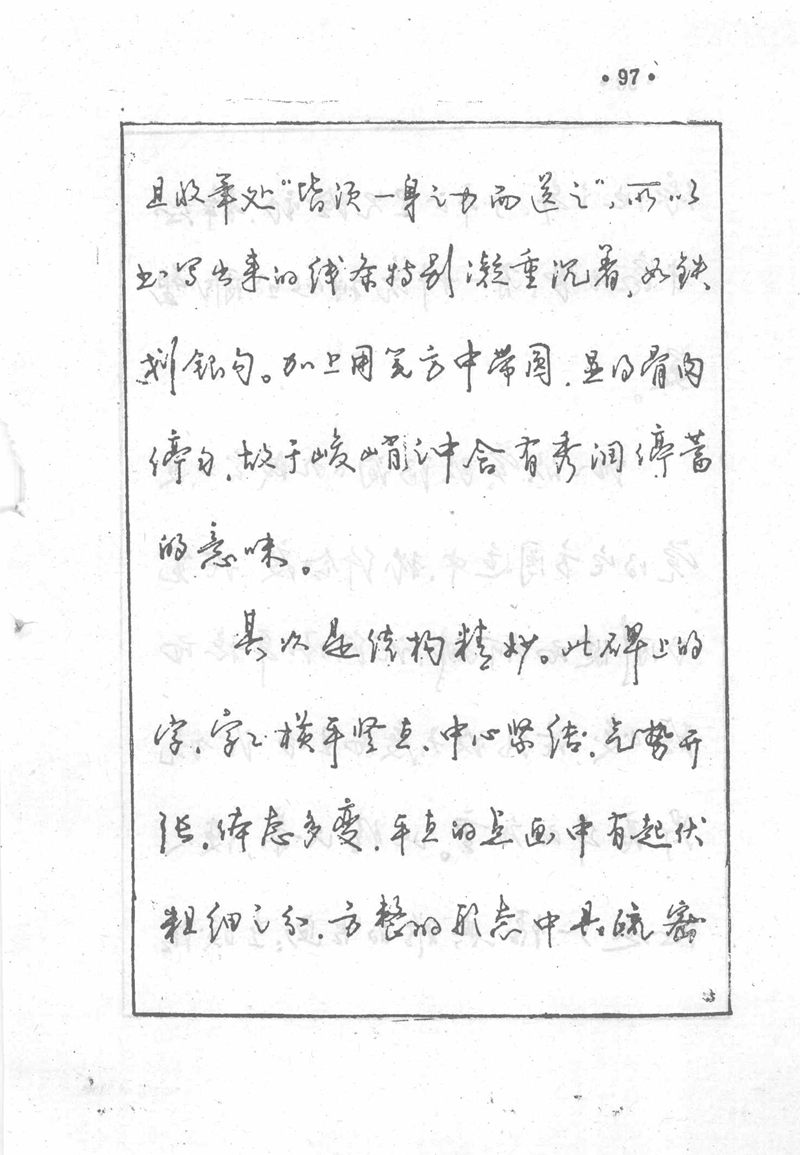 •97•
且收笔处“皆须一身之力而送之”，所以
书写出来的线条特别凝重沉着，如铁
划银勾。加上用笔方中带圆，显得骨肉
停匀，故于峻峭之中含有秀润停蓄
的意味。
其次是结构精妙。此碑上的
字，字字横平竖直，中心紧结，气势开
张，体态多变，平直的点画中有起伏
粗细之分，方整的形态中具疏密